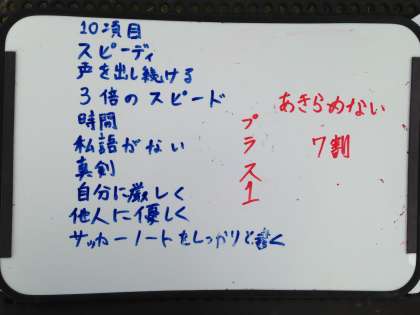 10項目
スピーディ
声を出し続ける
3倍のスピード
時間
私語がない
真剣
自分に厳しく
他人に優しく
サッカーノートをしっかりと書く
プラス1
あきらめない
7割